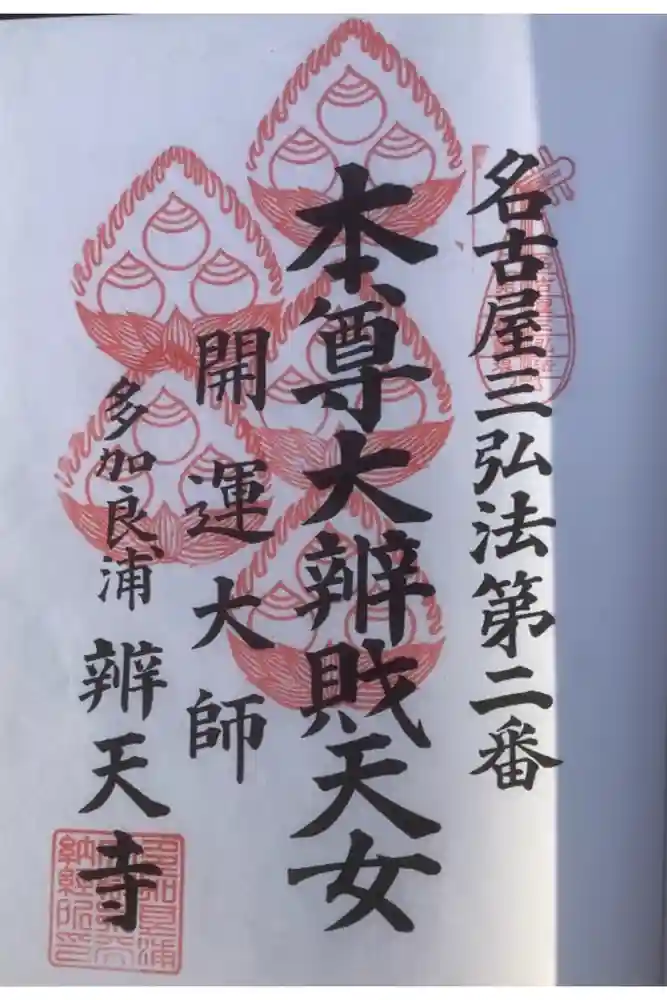 名古屋三弘法第二番
本尊大辨財天女
開運大師
多加良浦辨天寺